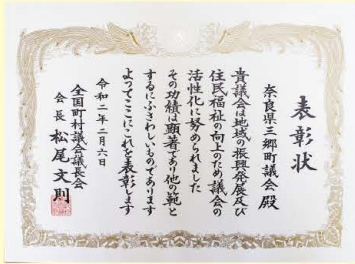 表彰状
奈良県三郷町議会殿
貴議会は地域の振興発展及び
住民福祉の向上のため議会の
活性化に努められました
その功績は顕著であり他の範と
するにふさわしいものであります
よってここにこれを表彰します
令和二年二月六日
全国町村議会議長会
会長 松尾文則